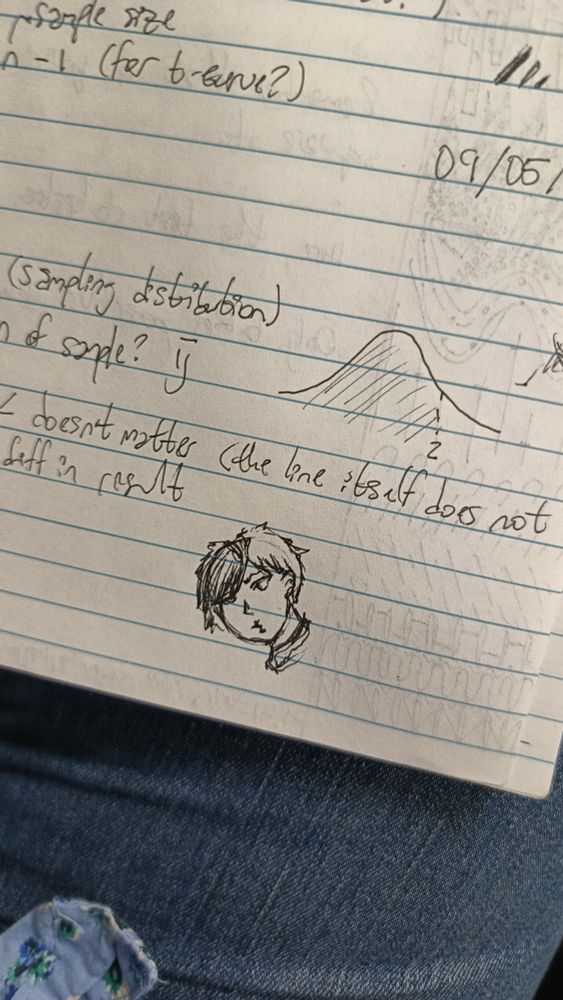 sample size
n-1 (for t-curve?)
09/05/
(sampling distribution)
n of sample? ȳ
2
< doesnt matter (the line itself does not
in result